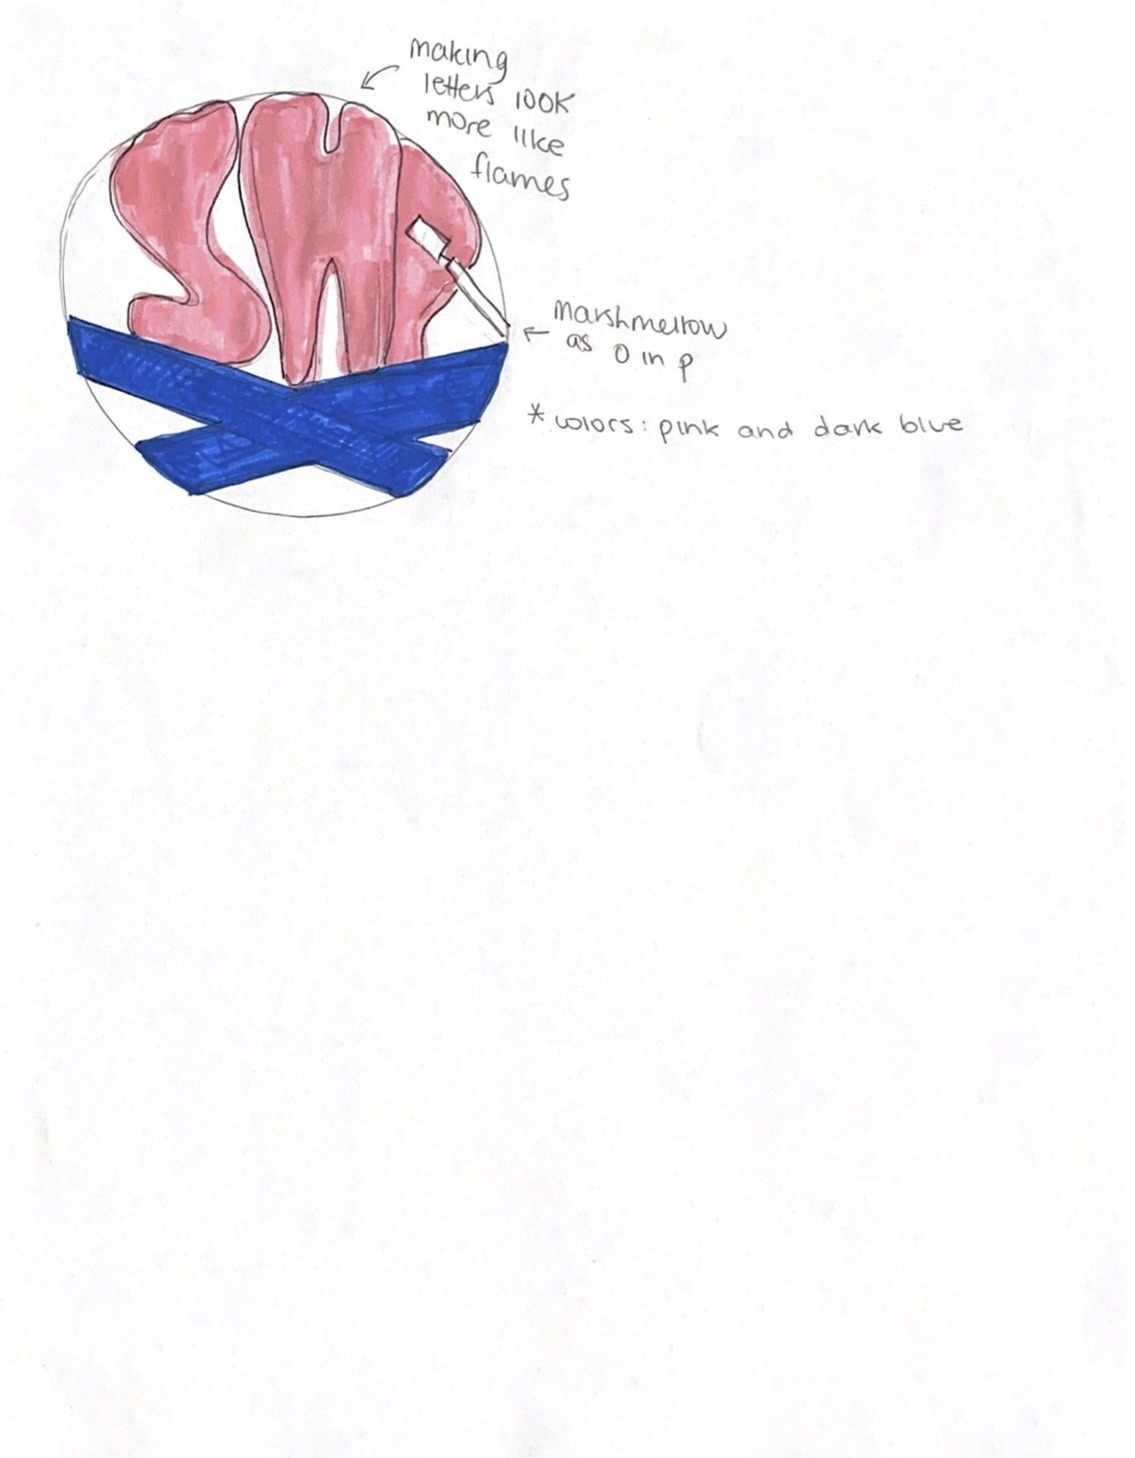 making
letters look
more like
flames
Marshmellow
as O in p
* colors: pink and dark blue